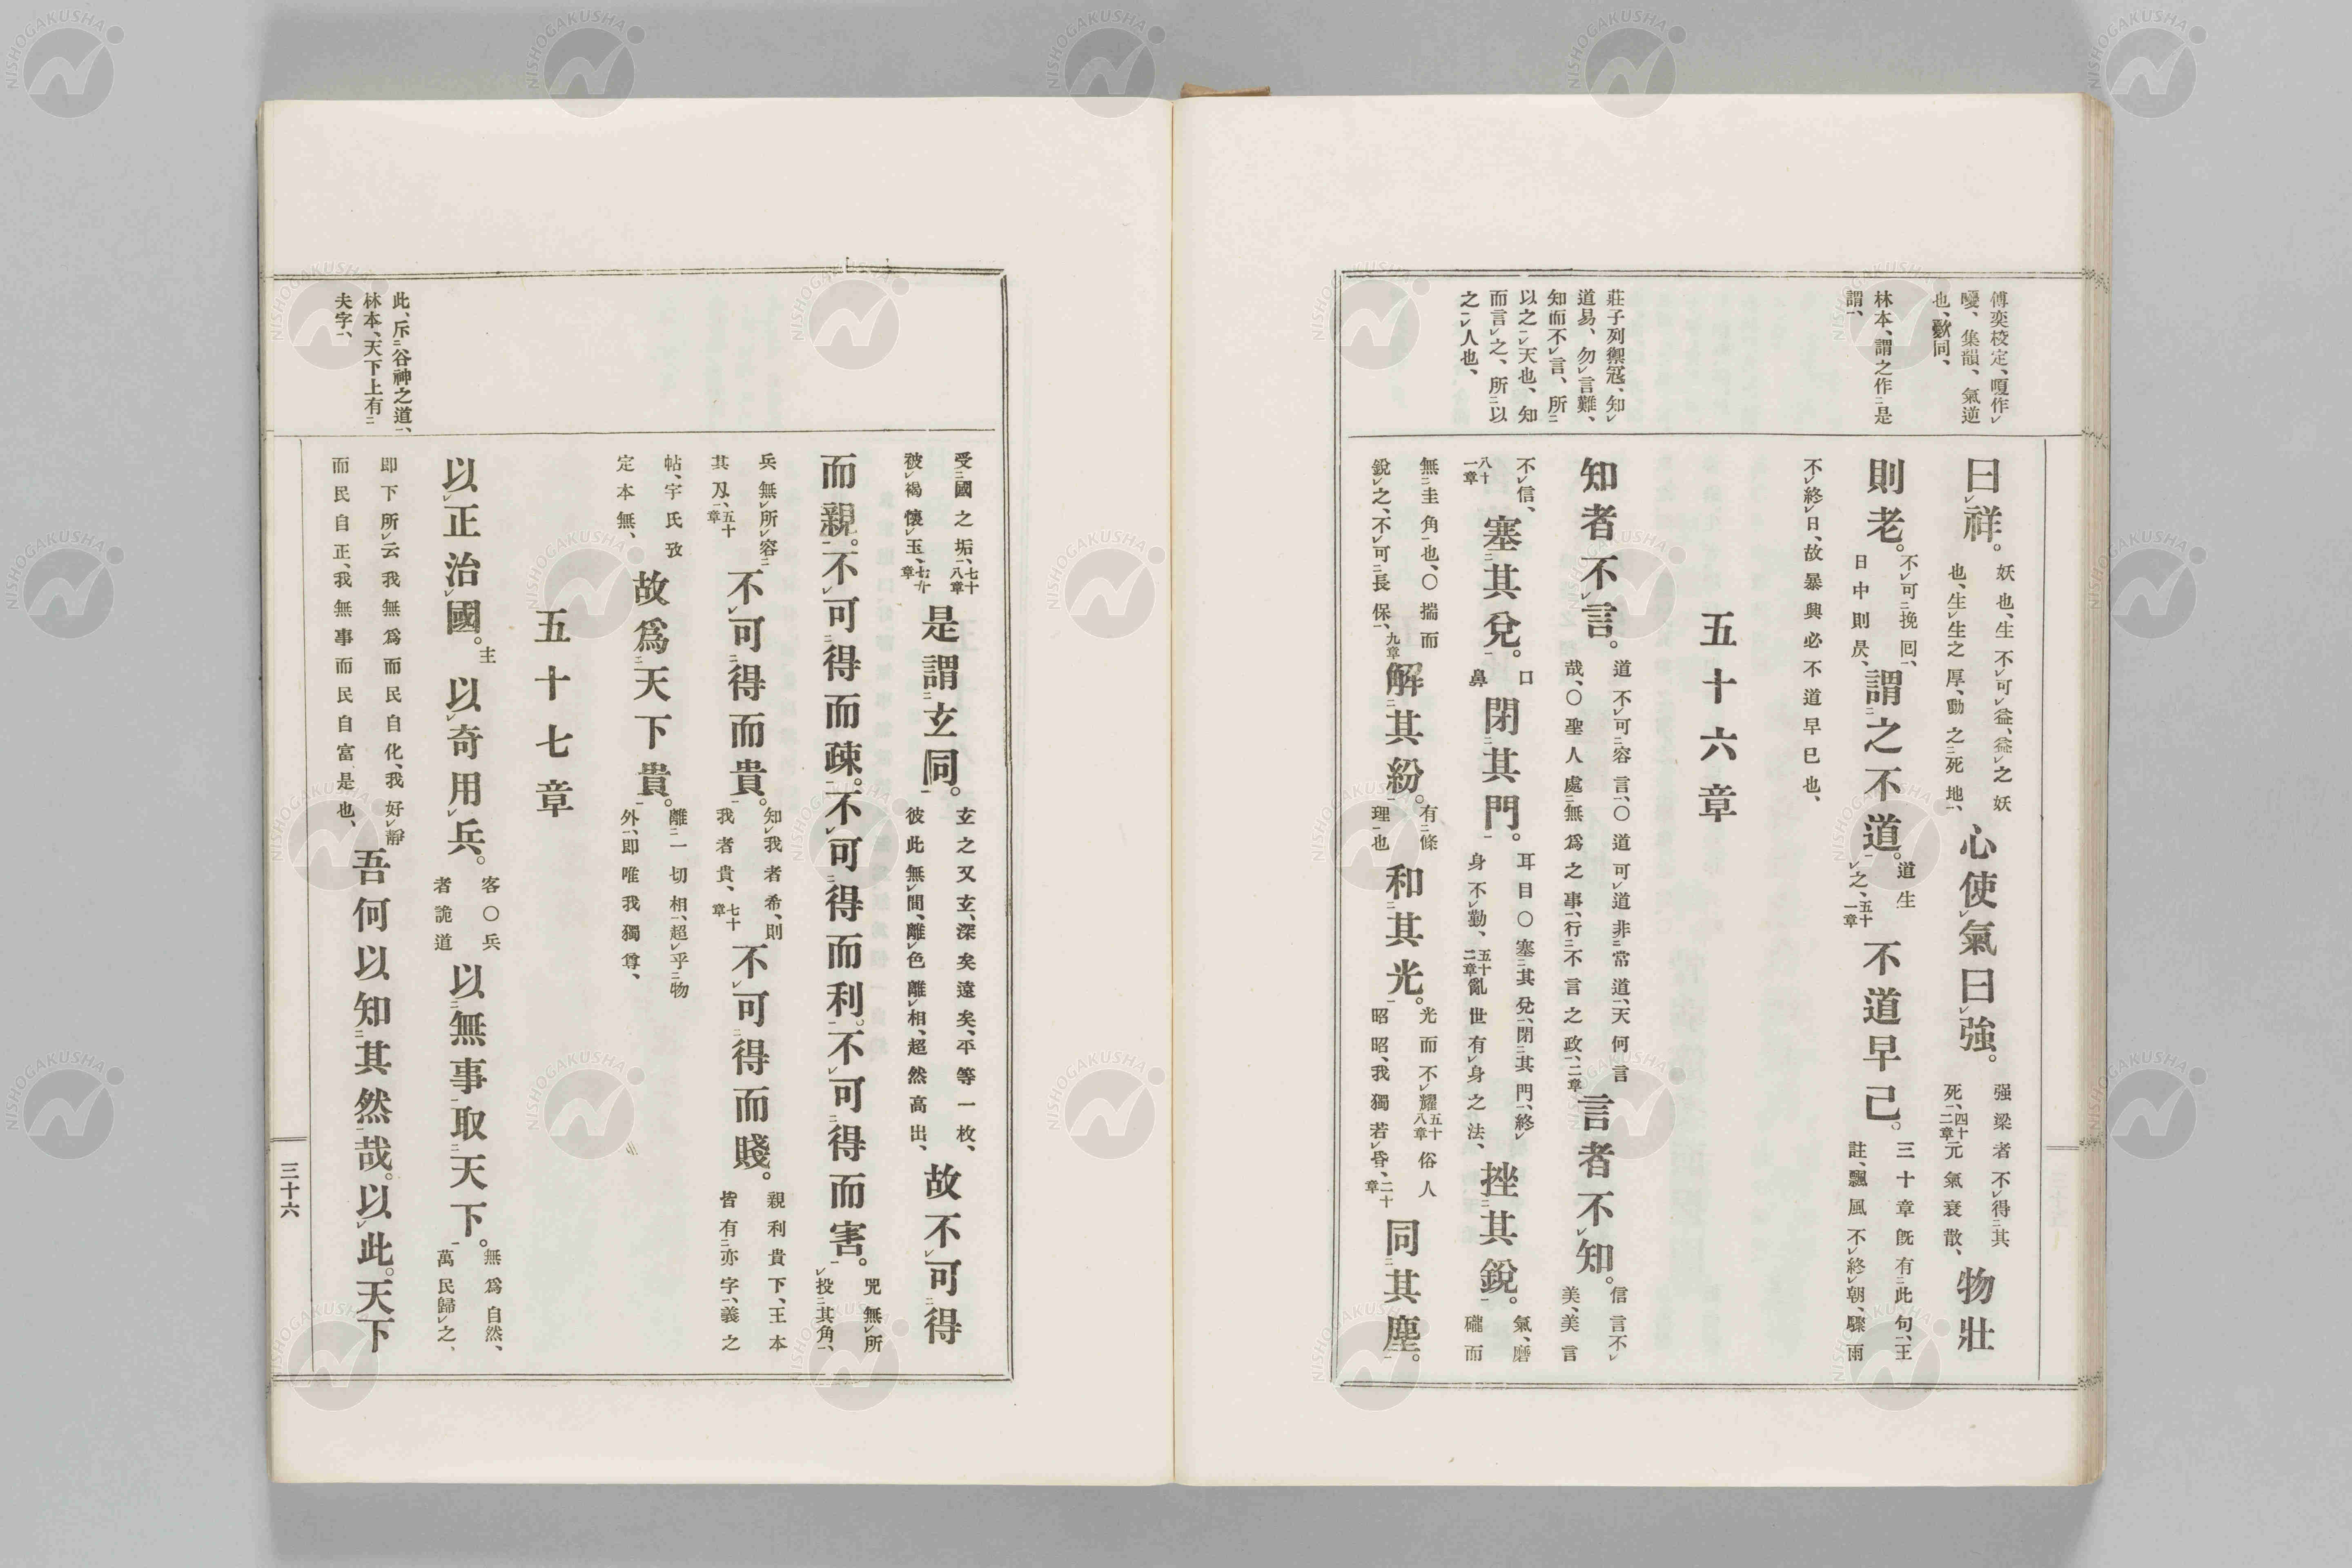 傅奕校定、嗄作㆑
嚘、集韻、氣逆
也、歎同、
林本、謂之作㆓是
謂㆒、
莊子列禦寇、知㆑
道易、勿㆑言難、
知而不㆑言、所㆓
以之㆒㆑天也、知
而言㆑之、所㆓以
之㆒㆑人也、
曰㆑祥。妖也、生不㆑可㆑益、益㆑之妖也、生㆑生之厚、動之㆓死地㆒、心使㆑氣曰㆑強。强梁者不㆑得㆓其死㆒、四十二章元氣衰散、物壯
則老。不㆑可㆓挽回㆒、日中則昃、謂㆓之不道㆒。道生㆑之、五十一章不道早已。三十章既有㆓此句㆒、王註、飄風不㆑終㆑朝、驟雨
不㆑終㆑日、故暴興必不道早已也、
五十六章
知者不㆑言。道不㆑可㆓容言㆒、〇道可㆑道非㆓常道㆒、天何言哉、〇聖人處㆓無爲之事㆒、行㆓不言之政㆒、二章言者不㆑知。信言不㆑美、美言
不㆑信、八十一章塞㆓其兌㆒。口鼻閉㆓其門㆒。耳目〇塞㆓其兌㆒、閉㆓其門㆒、終㆑身不㆑勤、五十二章亂世有㆑身之法、挫㆓其銳㆒。氣、磨礲而
無㆓圭角㆒也、〇揣而銳㆑之、不㆑可㆓長保㆒、九章解㆓其紛㆒。有㆓條理㆒也和㆓其光㆒。光而不㆑耀五十八章俗人昭昭、我獨若㆑昏、二十章同㆓其塵㆒。
受㆓國之垢㆒、七十八章被㆑褐懷㆑玉、七十章是謂㆓玄同㆒。玄之又玄、深矣遠矣、平等一枚、彼此無㆑間、離㆑色離㆑相、超然高出、故不㆑可㆓得
而親㆒。不㆑可㆓得而疎㆒。不㆑可㆓得而利㆒。不㆑可㆓得而害㆒。兕無㆑所㆑投㆓其角㆒、
兵無㆑所㆑容㆓其刄㆒、五十章不㆑可㆓得而貴㆒。知㆑我者希、則我者貴、七十章不㆑可㆓得而賤㆒。親利貴下、王本皆有㆓亦字㆒、義之
帖、宇氏攷定本無、故爲㆓天下貴㆒。離㆓一切相㆒、超㆑乎㆓物外㆒、即唯我獨尊、
五十七章
以㆑正治㆑國。主以㆑奇用㆑兵。客〇兵者詭道以㆓無事㆒取㆓天下㆒。無爲自然、萬民歸㆑之、
即下所㆑云我無爲而民自化、我好㆑靜而民自正、我無事而民自富是也、吾何以知㆓其然㆒哉。以㆑此。天下
此、斥㆓谷神之道㆒、
林本、天下上有㆓
夫字㆒、
三十六
NISHOGAKUSHA